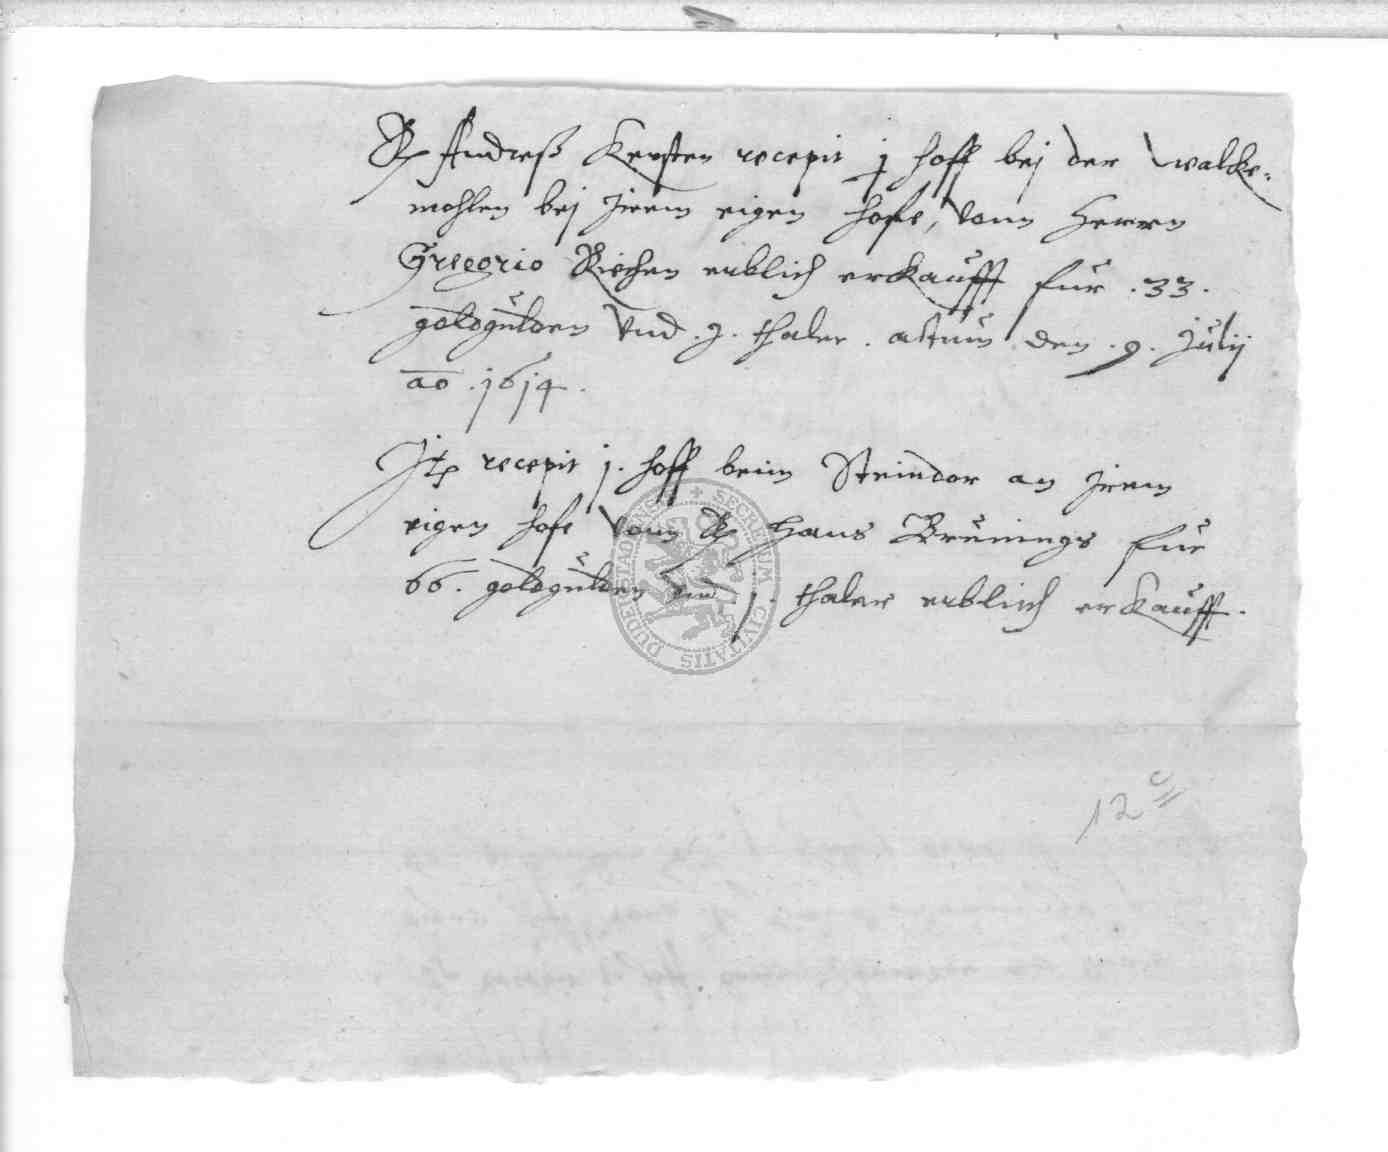 R Andreß Kersten recepit j hoff bej der walke-
mohlen bej Jrem eigen hofe, vonn Herrn
Gregorio Riechen erblich erkaufft für .33.
goldgulden vnd .j. thaler. actum den .9. Julij
ao .1614.
Jt recepit j. hoff beim Steindor an Jrem
eigen hofe vonn R Hans Brünings für
66. goldgulden vnd j. thaler erblich erkaufft.
12 c
SECRETUM CIVITATIS DUDERSTADENSIS